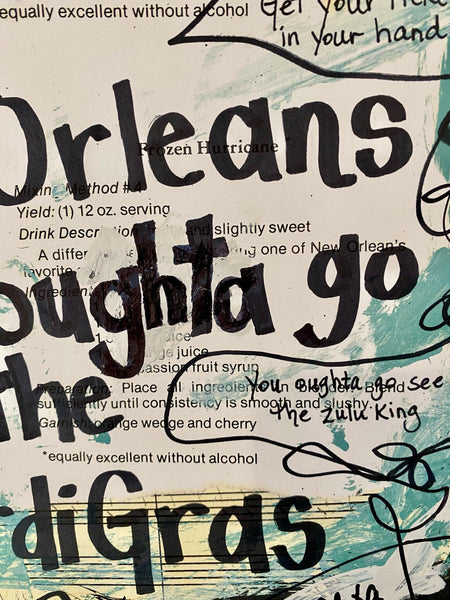 equally excellent without alcohol
Get your
in your hand
Orleans
Frozen Hurricane
Mixing Method #4
Yield: (1) 12 oz. serving
Drink Description and slightly sweet
A differ one of New Orlean's
favorite
Ingredien
oughta go
juice
juice
passion fruit syrup
the
Preparation: Place all ingredients in Blender. Blend
sufficiently until consistency is smooth and slushy
Garnish: orange wedge and cherry
you oughta go see
the zulu king
*equally excellent without alcohol
diGras